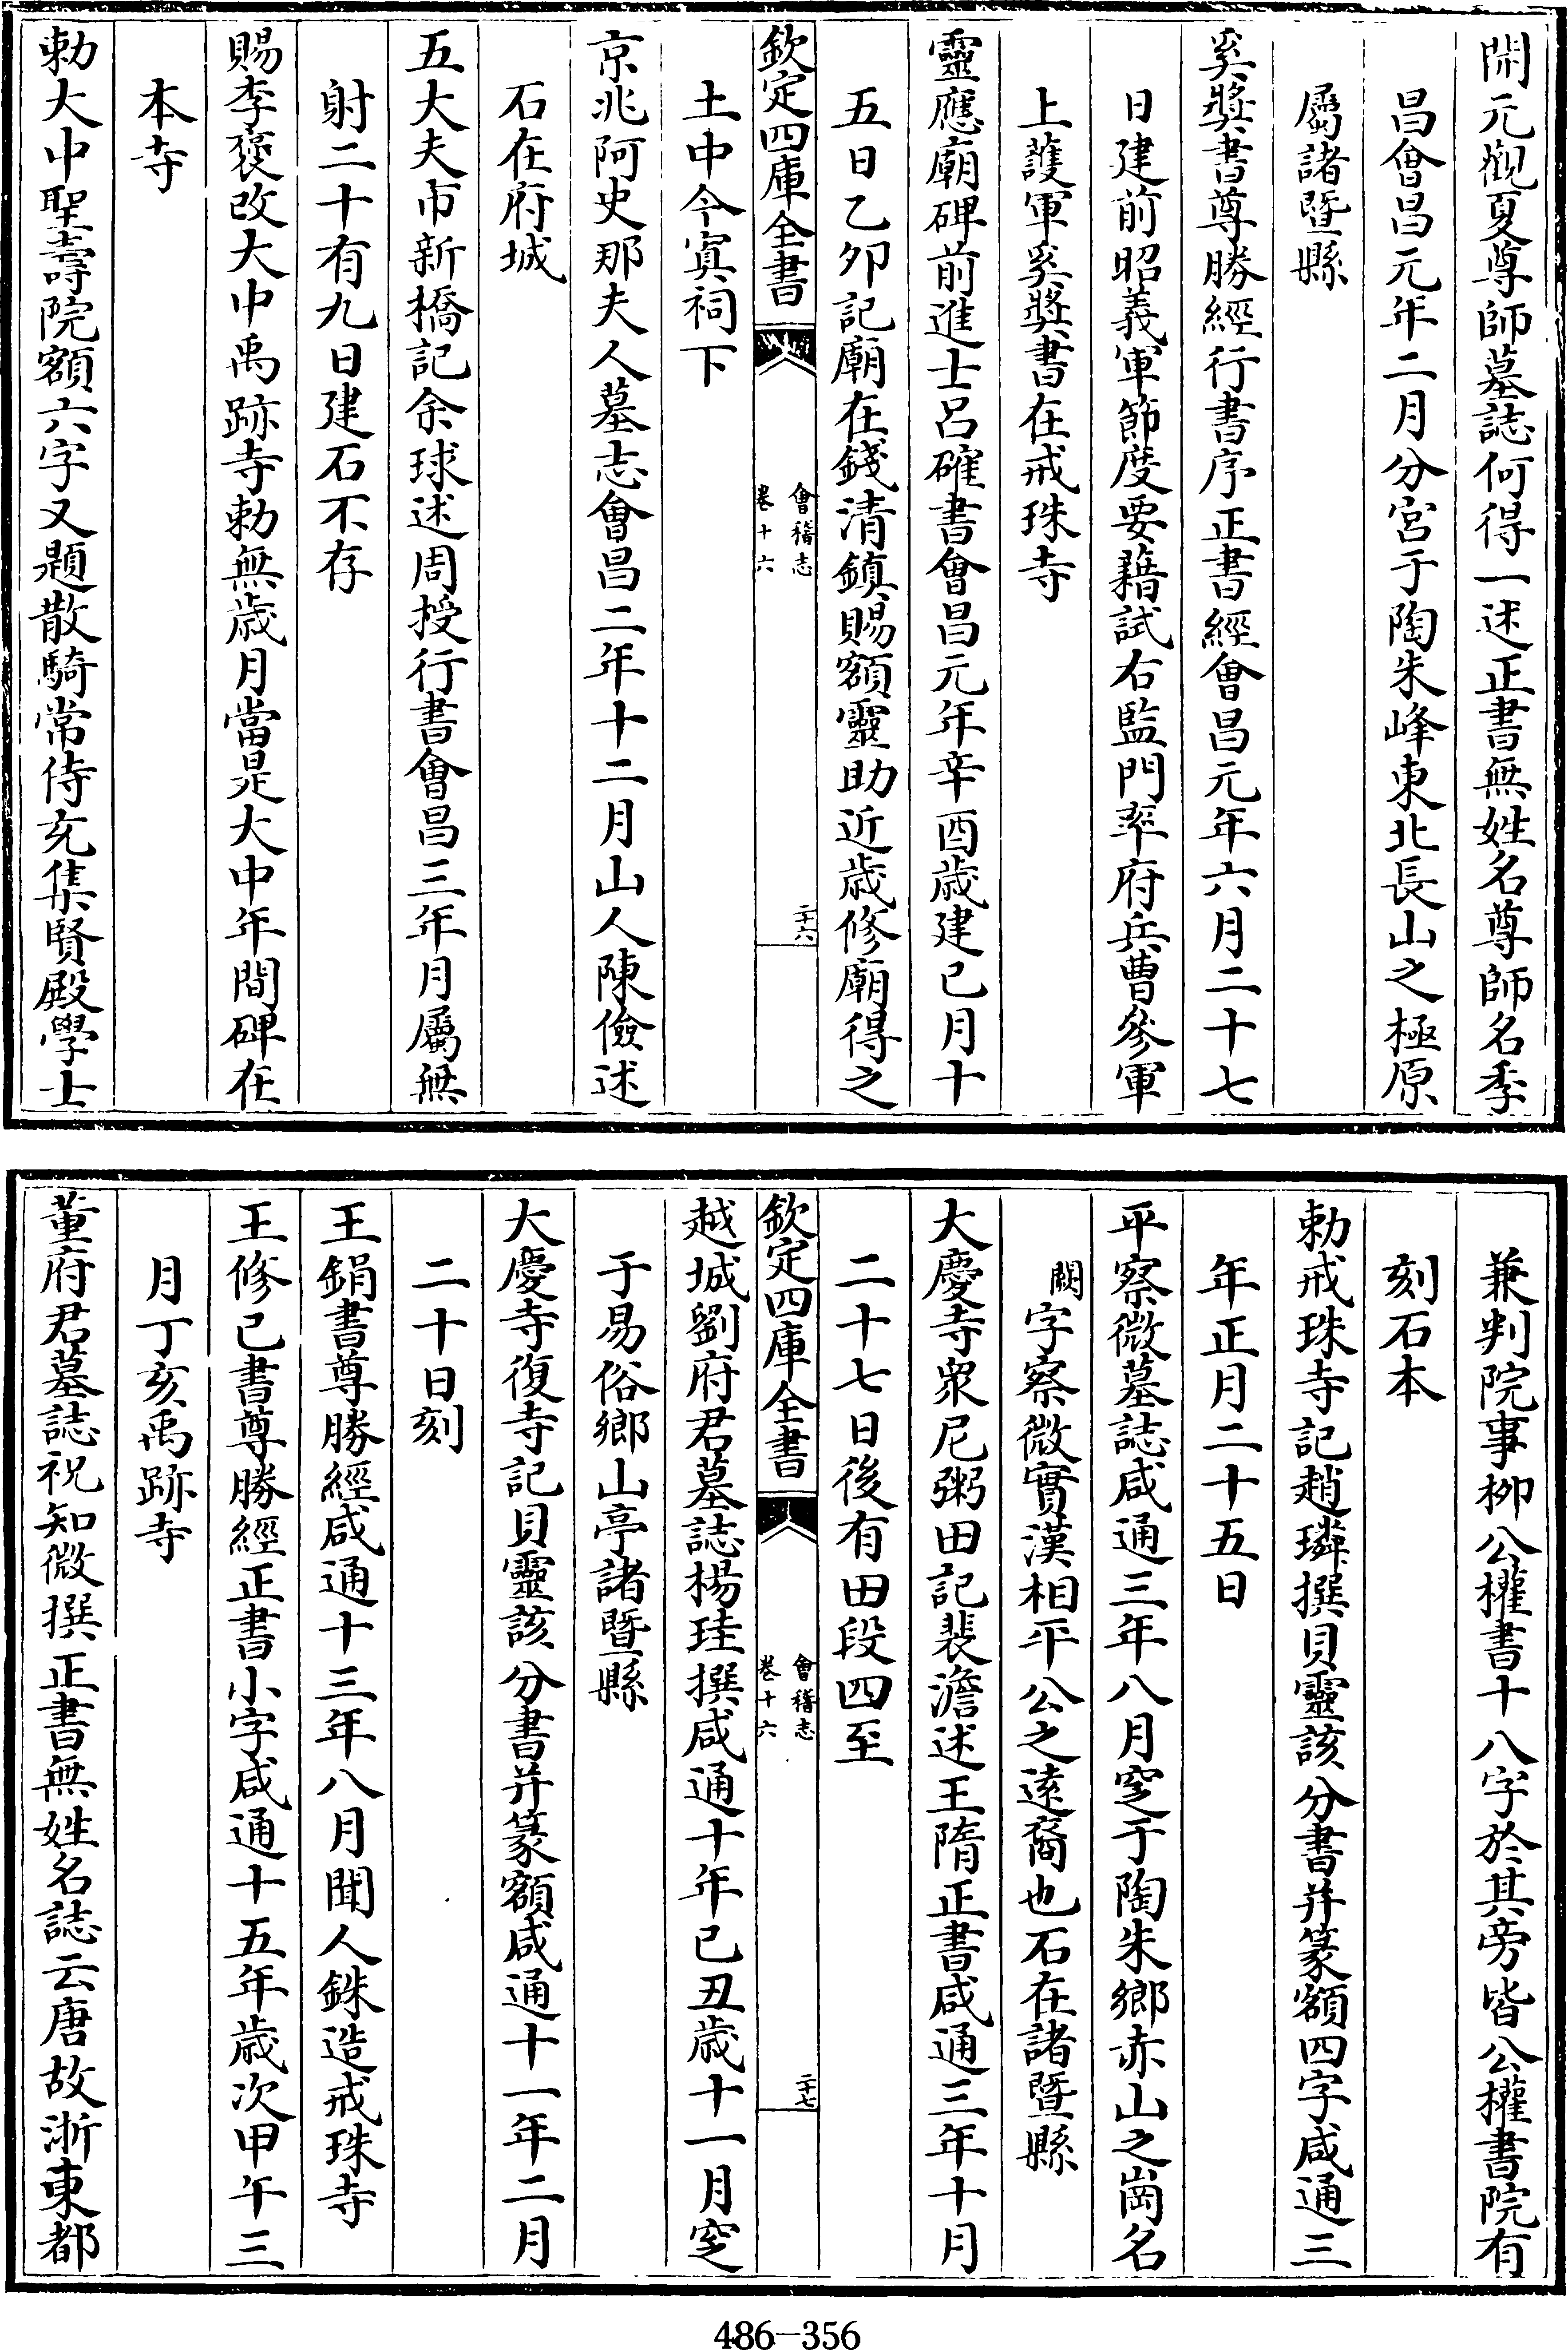 開元觀夏尊師墓誌何得一述正書無姓名尊師名季
昌會昌元年二月分宮于陶朱峰東北長山之極原
屬諸暨縣
奚奬書尊勝經行書序正書經會昌元年六月二十七
日建前昭義軍節度要藉試右監門率府兵曹參軍
上䕶軍奚奬書在戒珠寺
靈應廟碑前進士呂確書會昌元年辛酉歲建巳月十
五日乙卯記廟在錢清鎮賜額靈助近歲修廟得之
土中今寘祠下
欽定四庫全書
會稽志
卷十六
二十六
京兆阿史那夫人墓志會昌二年十二月山人陳儉述
石在府城
五大夫市新橋記余球述周授行書會昌三年月屬無
射二十有九日建石不存
賜李襃改大中禹跡寺勅無歲月當是大中年間碑在
本寺
勅大中聖壽院額六字又題散騎常侍充集賢殿學士
兼判院事柳公權書十八字於其旁皆公權書院有
刻石本
勅戒珠寺記趙璘撰貝靈該分書并篆額四字咸通三
年正月二十五日
平察微墓誌咸通三年八月窆于陶朱鄉赤山之崗名
闕字察微實漢相平公之逺裔也石在諸暨縣
大慶寺衆尼粥田記裴澹述王隋正書咸通三年十月
二十七日後有田段四至
欽定四庫全書
會稽志
卷十六
二十七
越城劉府君墓誌楊珪撰咸通十年己丑歲十一月窆
于易俗鄉山亭諸暨縣
大慶寺復寺記貝靈該分書并篆額咸通十一年二月
二十日刻
王鋗書尊勝經咸通十三年八月聞人銖造戒珠寺
王修已書尊勝經正書小字咸通十五年歲次甲午三
月丁亥禹跡寺
董府君墓誌祝知微撰正書無姓名誌云唐故浙東都
486-356